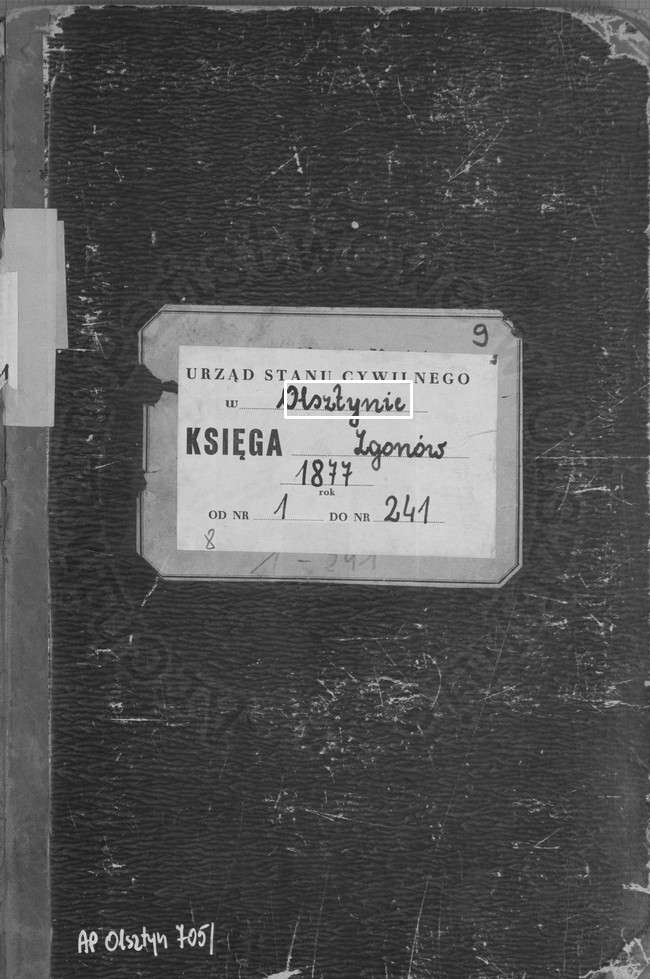 9
URZĄD STANU CYWILNEGO
w Olsztynie
KSIĘGA Zgonów
1877
rok
OD NR 1 DO NR 241
8
1 - 241
1
AP Olsztyn 705/